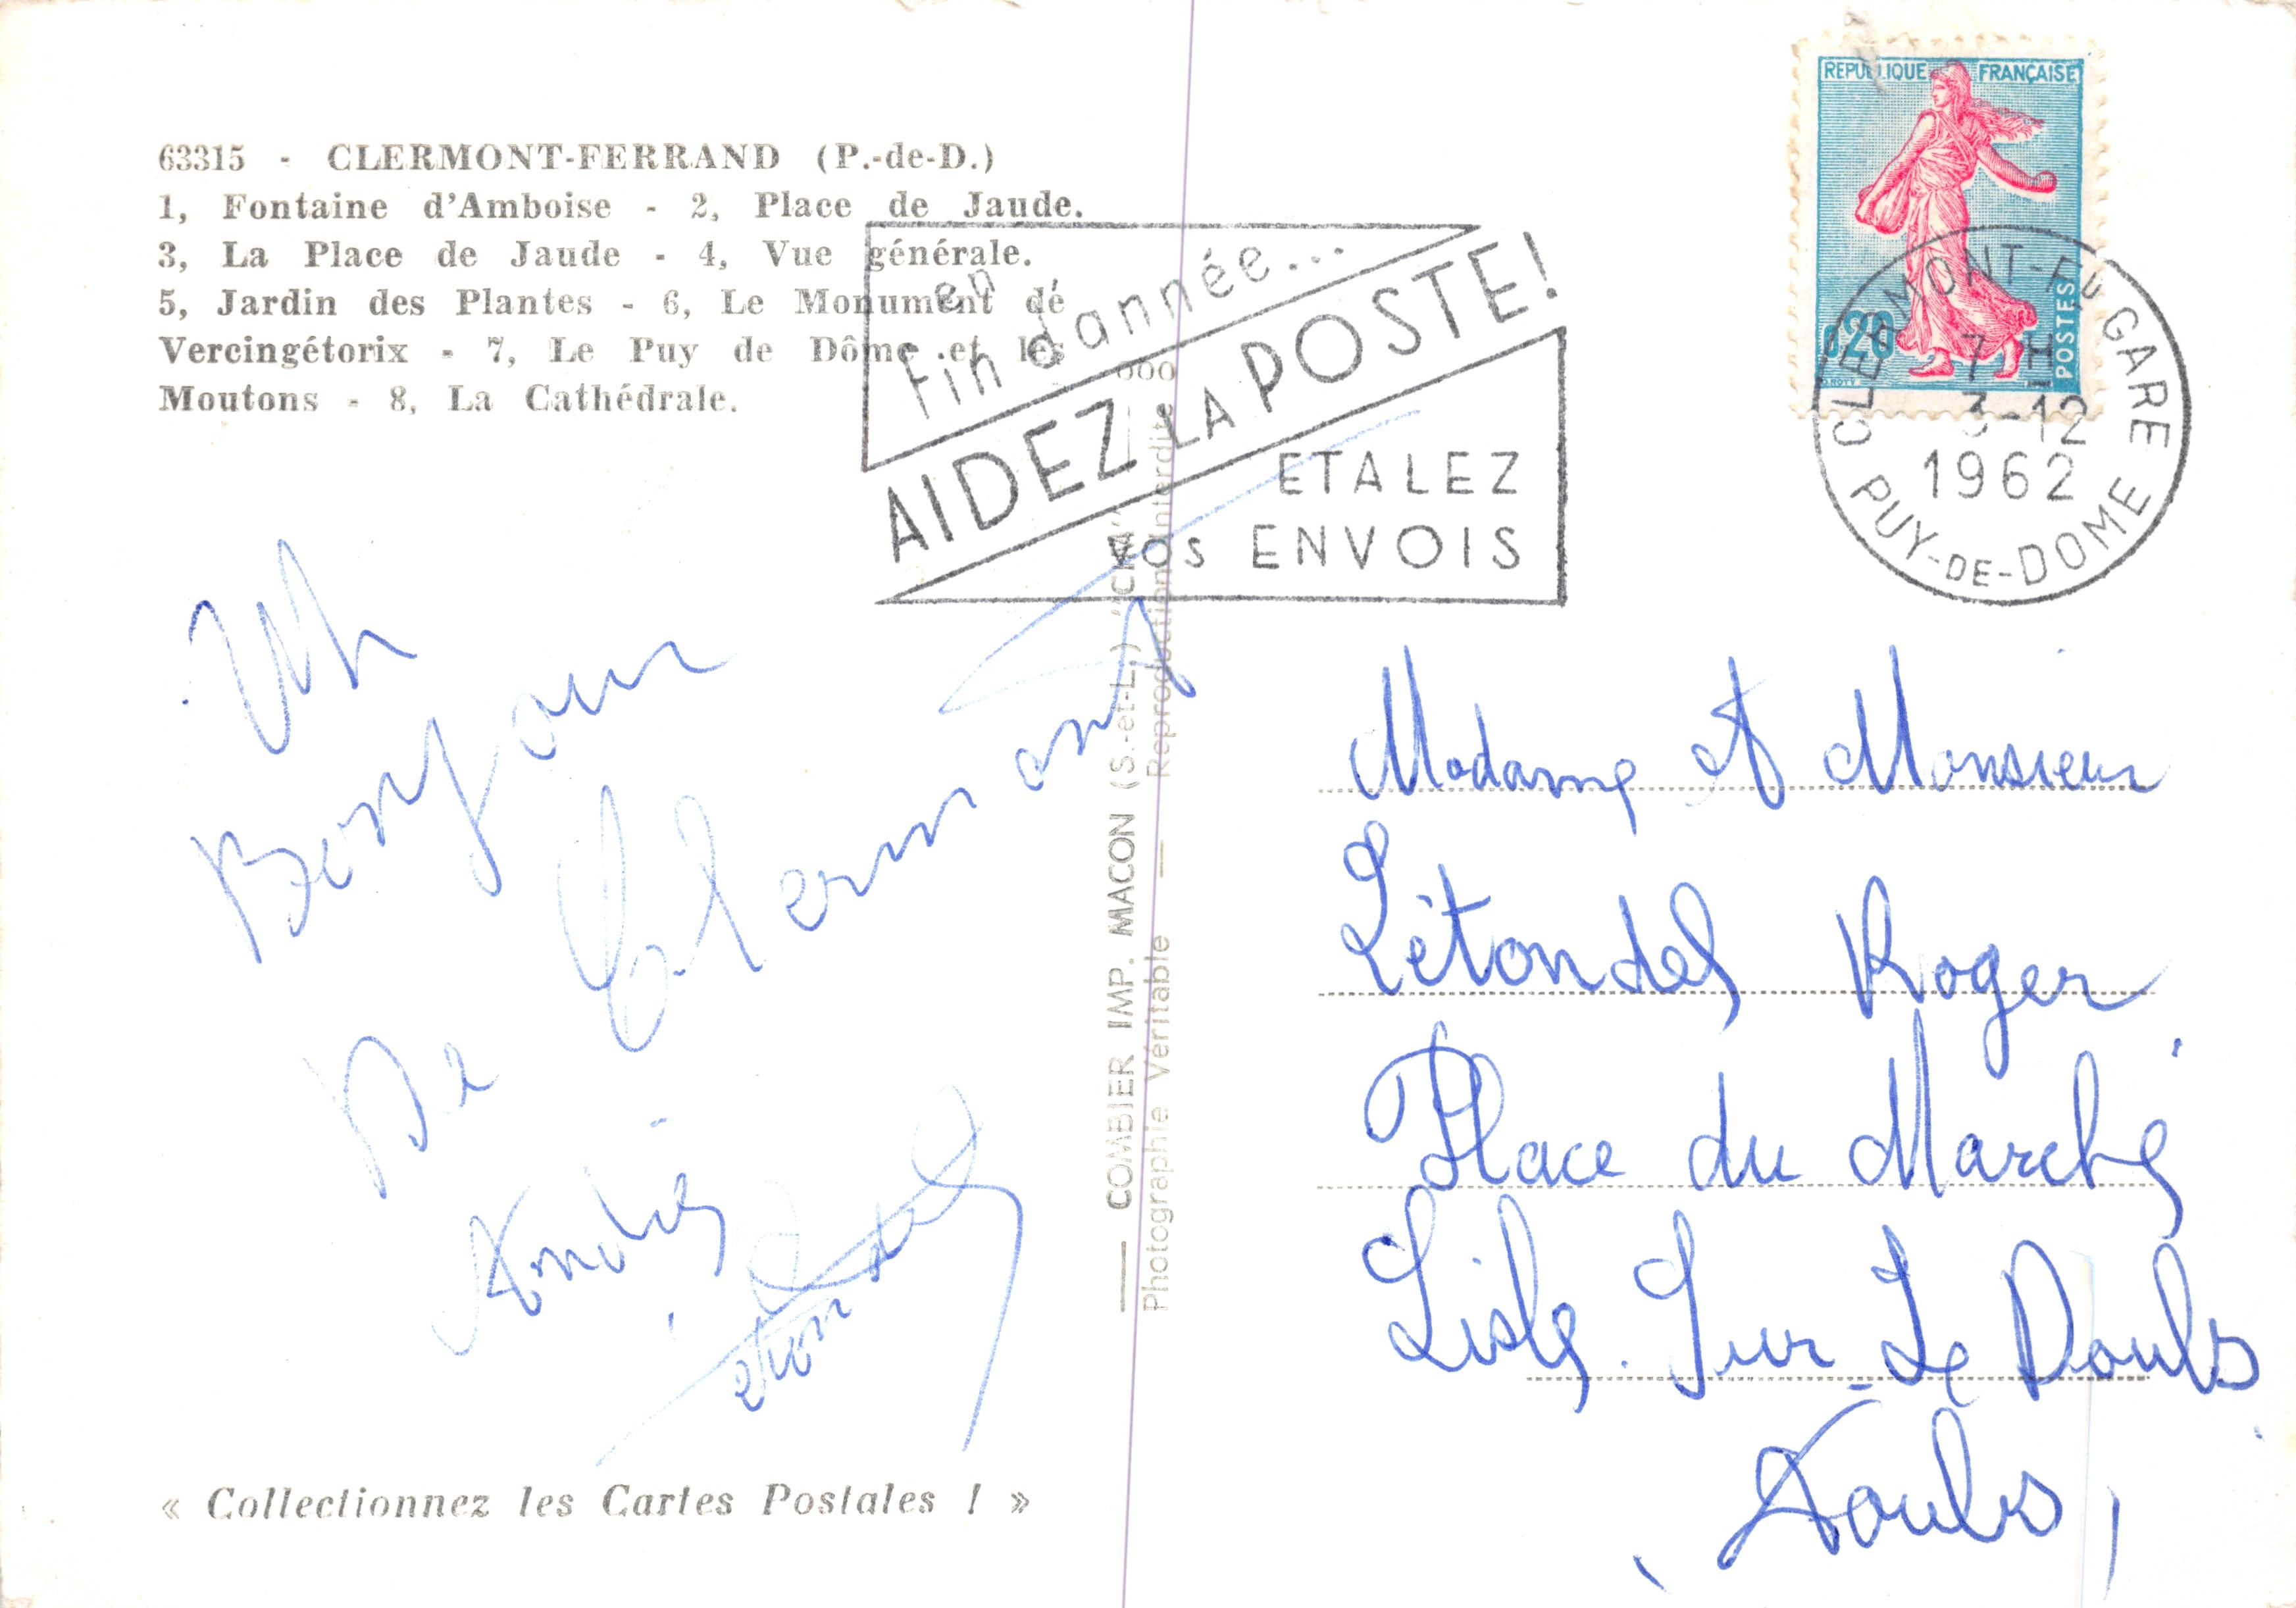 63315 - CLERMONT-FERRAND (P.-de-D.)
1, Fontaine d'Amboise - 2, Place de Jaude.
3, La Place de Jaude - 4, Vue générale.
5, Jardin des Plantes - 6, Le Monument de
Vercingétorix - 7, Le Puy de Dôme et les
Moutons - 8, La Cathédrale.
en
fin d'année...
AIDEZ LA POSTE!
ETALEZ
vos ENVOIS
REPUBLIQUE FRANÇAISE
0,20
POSTES
CLERMONT-FD GARE
7 H
3-12
1962
PUY-DE-DOME
Un
Bonjour
De Clermont
André
Letondel
COMBIER IMP. MACON (S.-et-L.) "CIM"
Photographie Véritable — Reproduction interdite
Madame et Monsieur
Létondel Roger
Place du Marché
Lisle Sur Le Doubs
(Doubs)
« Collectionnez les Cartes Postales ! »